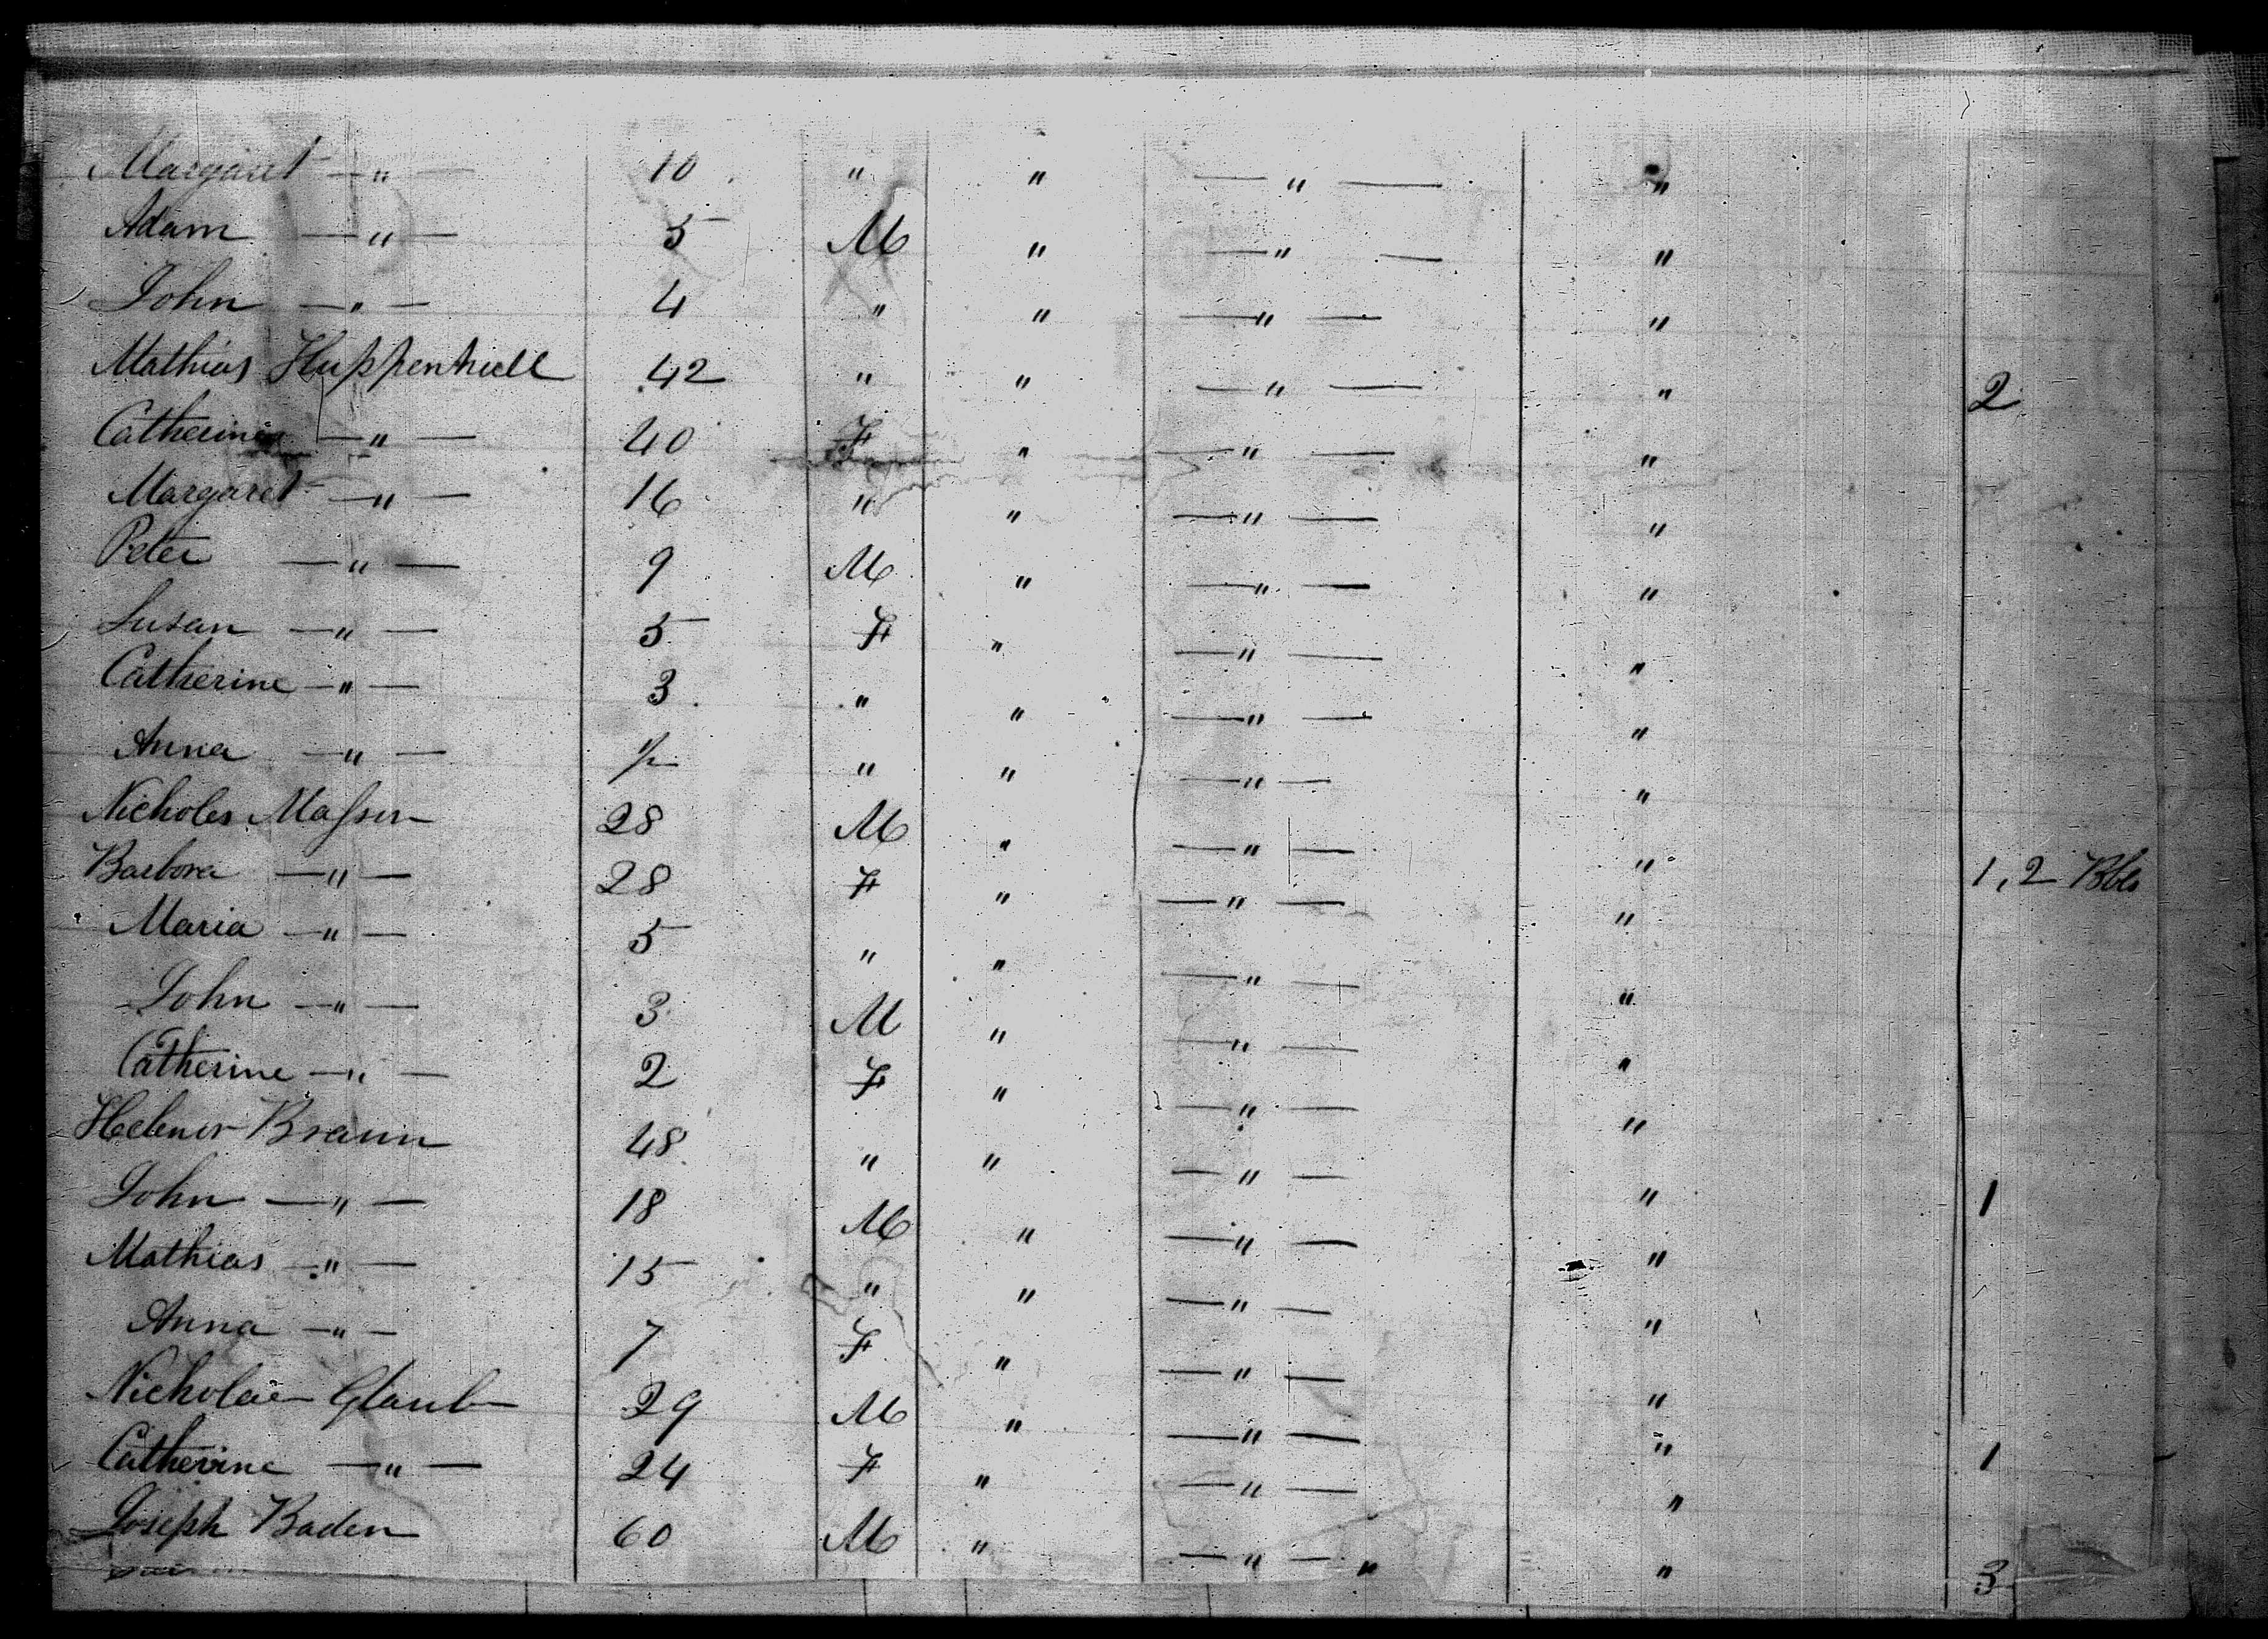 Margaret — " — 10 " " — " — "
Adam — " — 5 M " — " — "
John — " — 4 " " — " — "
Mathias Huppenthiell 42 " " — " — " 2
Catherine — " — 40 F " — " — "
Margaret — " — 16 " " — " — "
Peter — " — 9 M " — " — "
Susan — " — 5 F " — " — "
Catherine — " — 3 " " — " — "
Anna — " — " " — " — "
Nicholes Masson 28 M " — " — " 1, 2 Bbls
Barbora — " — 28 F " — " — "
Maria — " — 5 " " — " — "
John — " — 3 M " — " — "
Catherine — " — 2 F " — " — "
Braun 48 " " — " — " 1
John — " — 18 M " — " — "
Mathias — " — 15 " " — " — "
Anna — " — 7 F " — " — "
Nicholas Glaub 29 M " — " — " 1
Catherine — " — 24 F " — " — "
Joseph Baden 60 M " — " — " " 3